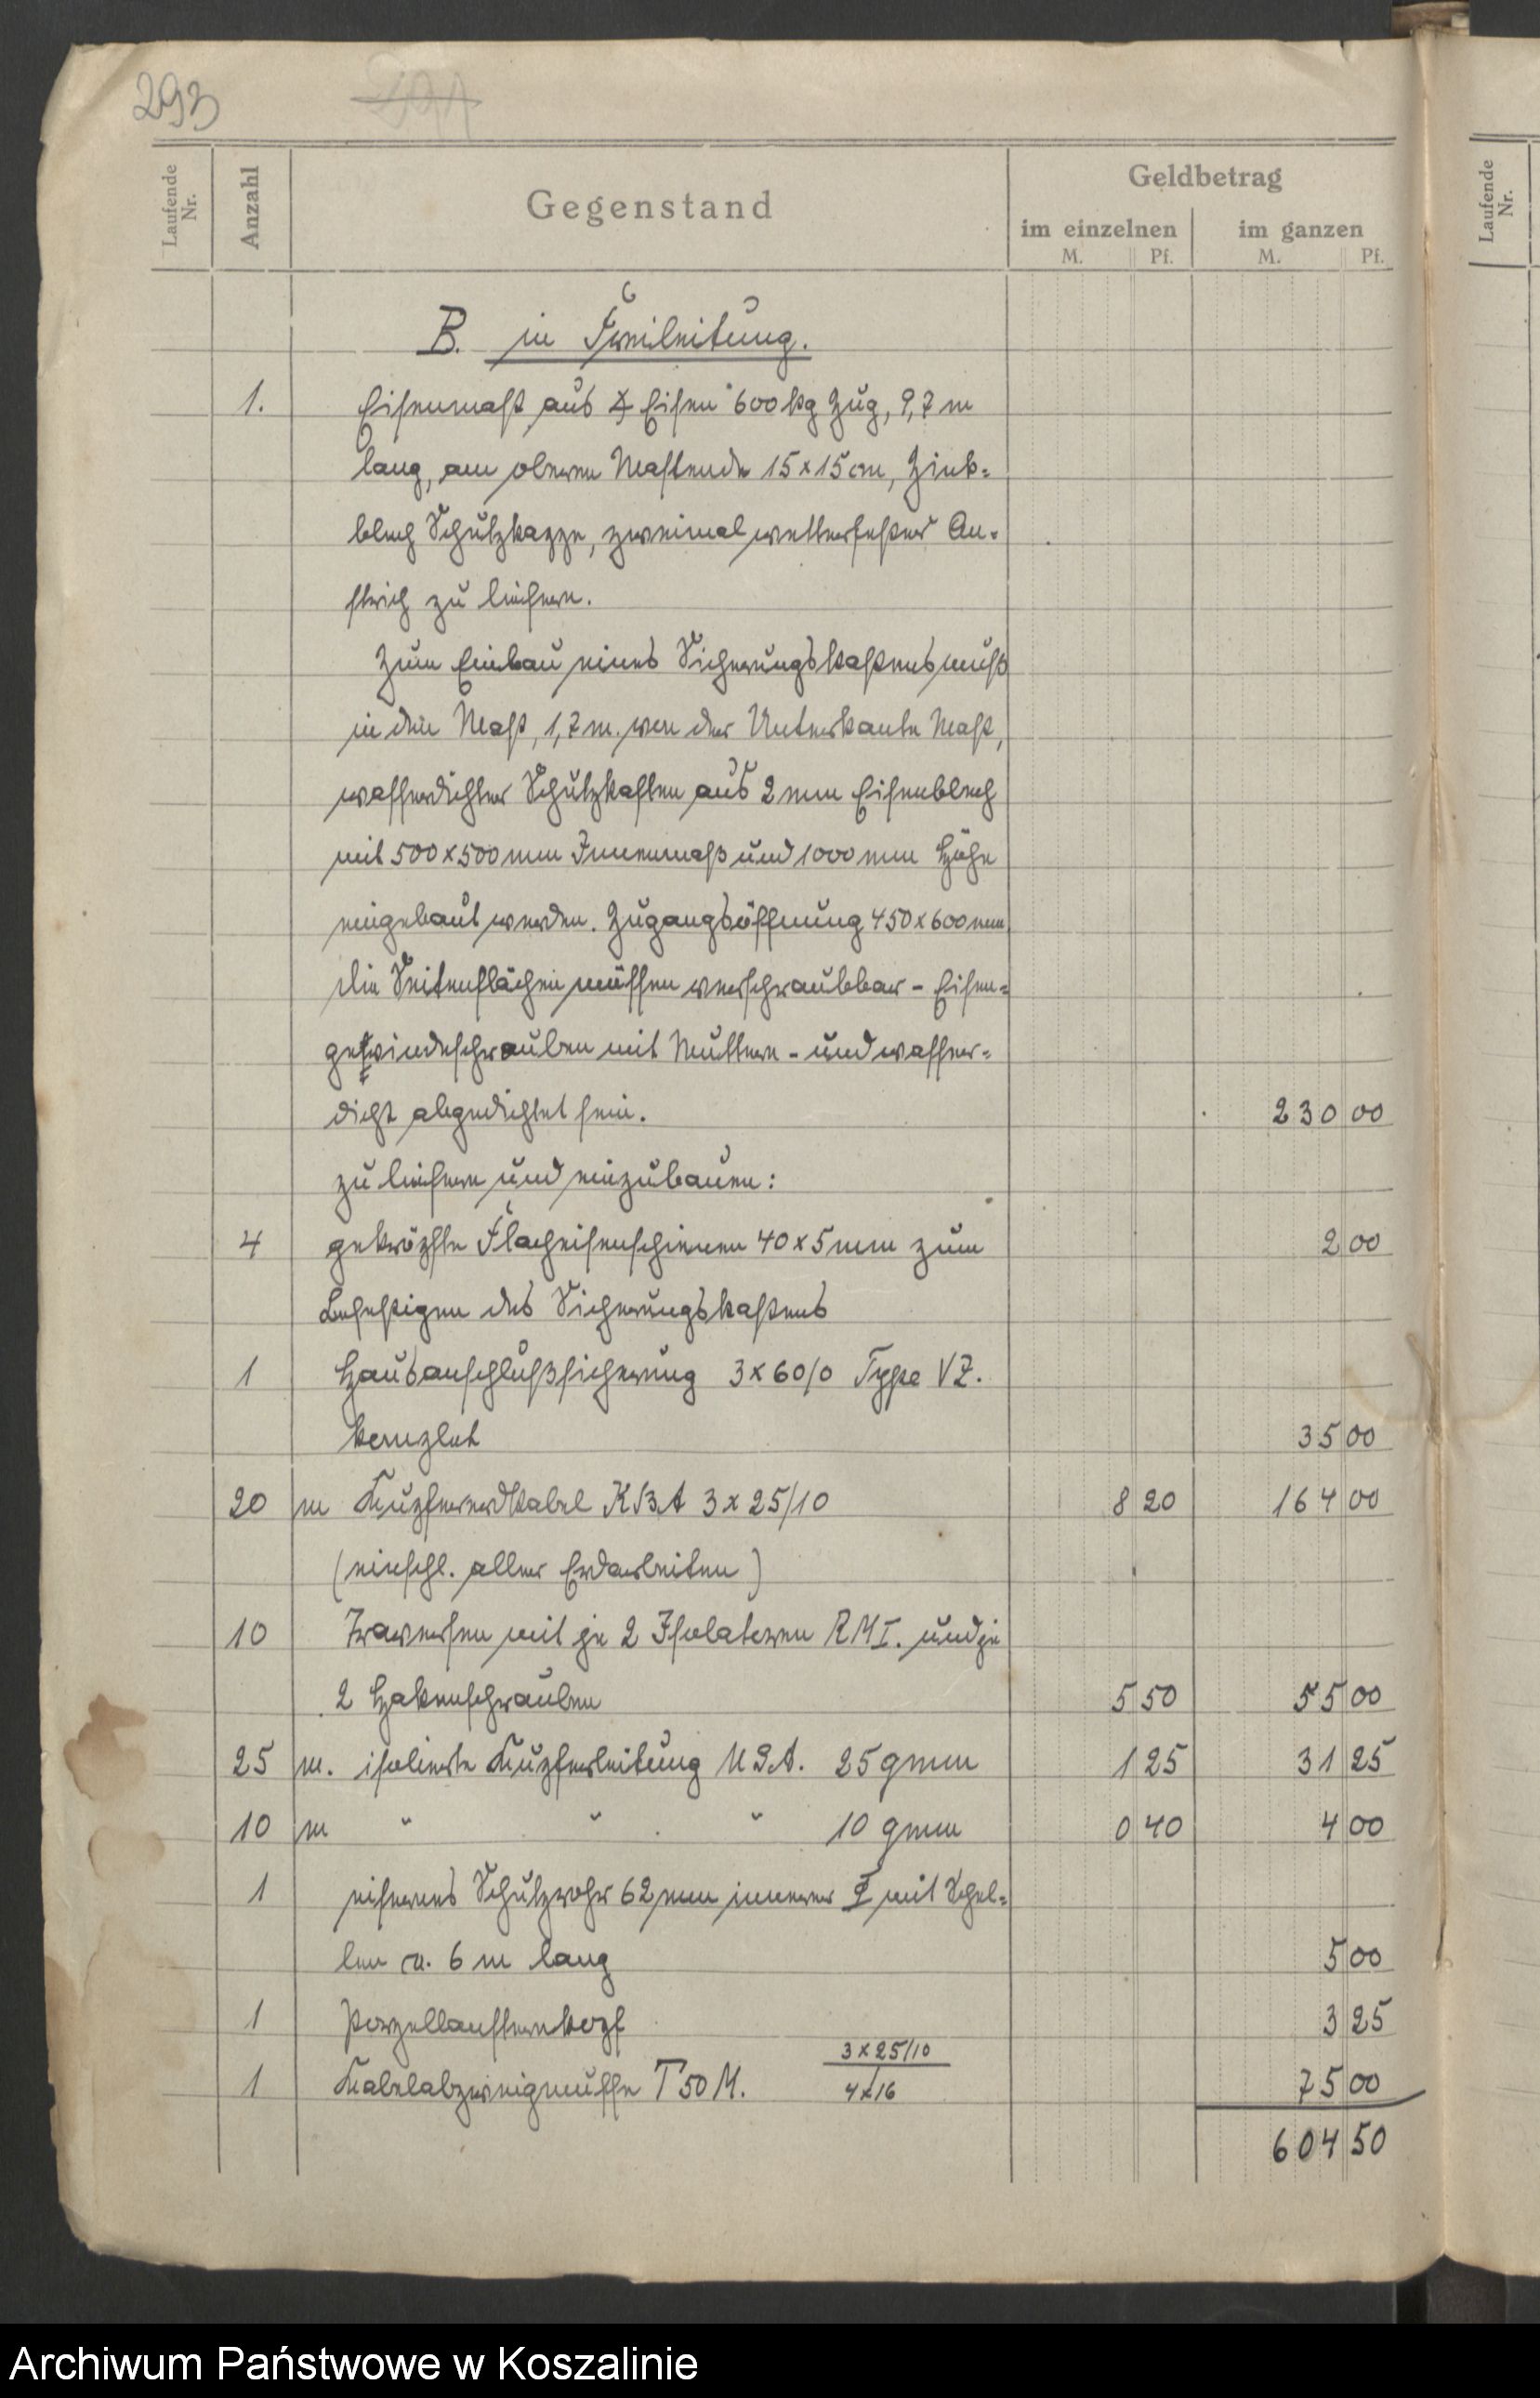 293
Laufende Nr.
Anzahl
Gegenstand
Geldbetrag
im einzelnen
im ganzen
M. Pf. M. Pf.
Laufende Nr.
B. in Freileitung.
1. Eisenmast aus ∠ Eisen 600 kg Zug, 9,7 m
lang, am oberen Mastende 15 x 15 cm, Zink-
blech Schutzkappe, zweimal wetterfester An-
strich zu liefern.
Zum Einbau eines Sicherungskastens muß
in den Mast, 1,7 m. von der Unterkante Mast,
wasserdichter Schutzkasten aus 2 mm Eisenblech
mit 500 x 500 mm Innenmaß und 1000 mm Höhe
eingebaut werden. Zugangsöffnung 450 x 600 mm
die Seitenflächen müssen verschraubbar - Eisen-
gewindeschrauben mit Muttern - und wasser-
dicht abgedichtet sein. 230 00
zu liefern und einzubauen:
4 gekröpfte Flacheisenschienen 40 x 5 mm zum 2 00
Befestigen des Sicherungskastens
1 Hausanschlußsicherung 3 x 60/0 Type VZ.
komplet 35 00
20 m Kupfererdkabel KBA 3 x 25/10 8 20 164 00
(einschl. aller Erdarbeiten)
10 Traversen mit je 2 Isolatoren RMI. und je
2 Hakenschrauben 5 50 55 00
25 m. isolierte Kupferleitung NGA. 25 qmm 1 25 31 25
10 m " " " 10 qmm 0 40 4 00
1 eisernes Schutzrohr 62 mm innerer Ø mit Schel-
len ca. 6 m lang 5 00
1 Porzellansternkopf 3 25
1 Kabelabzweigmuffe T 50 M. 3 x 25/10 75 00
4 x 16
604 50
Archiwum Państwowe w Koszalinie